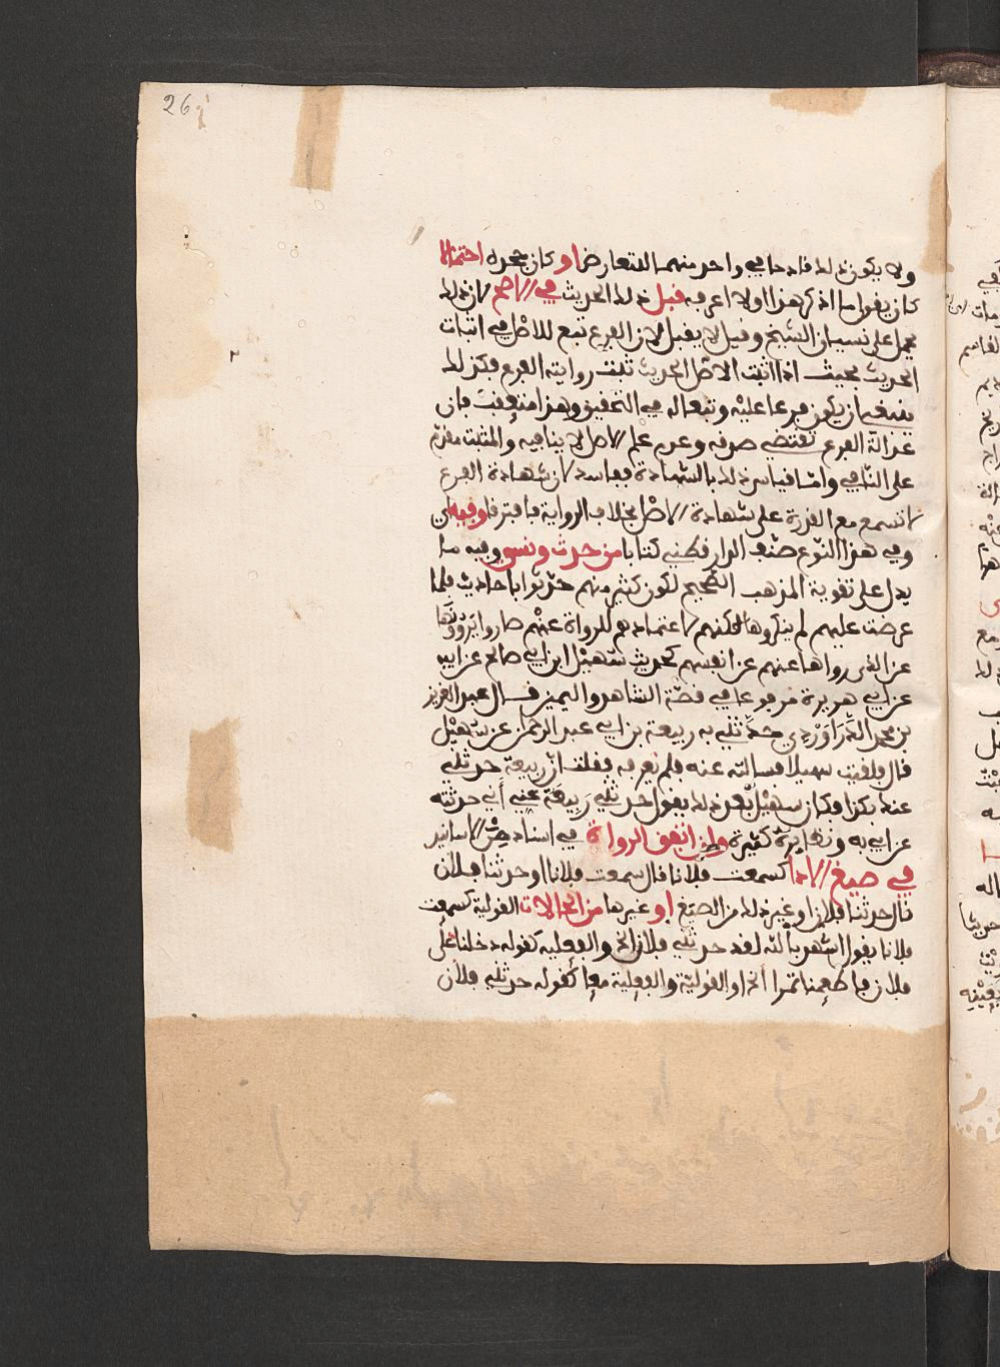 26
ولا يكون ذلك قادحا في واحد منهما للتعارض او كان جحده احتمالا
كان يقول ما اذكر هذا او لا اعرفه قبل ذلك الحديث في الاصح لان ذلك
يحمل على نسيان الشيخ وقيل لا يقبل لان الفرع تبع للاصل في اثبات
الحديث بحيث اذا اثبت الاصل الحديث ثبتت رواية الفرع فكذلك
ينبغي ان يكون فرعا عليه وتبعا له في التحقيق وهذا متعقب بان
عدالة الفرع تقتضي صدقه وعدم علم الاصل لا ينافيه والمثبت مقدم
على النافي واما قياس ذلك بالشهادة ففاسد لان شهادة الفرع
لا تسمع مع القدرة على شهادة الاصل بخلاف الرواية فافترقا وفيه اي
وفي هذا النوع صنف الدارقطني كتابا من حدث ونسي وفيه ما
يدل على تقوية المذهب الصحيح لكون كثير منهم حدثوا باحاديث فلما
عرضت عليهم لم يتذكروها لكنهم لاعتمادهم للرواة عنهم صاروا يروونها
عن الذي رواها عنهم عن انفسهم كحديث سهيل ابن ابي صالح عن ابيه
عن ابي هريرة مرفوعا في قصة الشاهد واليمين قال عبد العزيز
بن محمد الدراوردي حدثني به ربيعة بن ابي عبد الرحمان عن سهيل
قال فلقيت سهيلا فسالته عنه فلم يعرفه فقلت ان ربيعة حدثني
عنك بكذا فكان سهيل بعد ذلك يقول حدثني ربيعة عني أني حدثته
عن ابي به ونظايره كثيرة وان اتفق الرواة في اسناد من الاسانيد
في صيغ الادا كسمعت فلانا قال سمعت فلانا او حدثنا فلان
قال حدثنا فلان او غير ذلك من الصيغ او غيرها من الحالات القولية كسمعت
فلانا يقول اشهد بالله لقد حدثني فلان الخ والفعلية كقوله دخلنا على
فلان فاطعمنا تمرا الخ او القولية والفعلية معا كقوله حدثني فلان